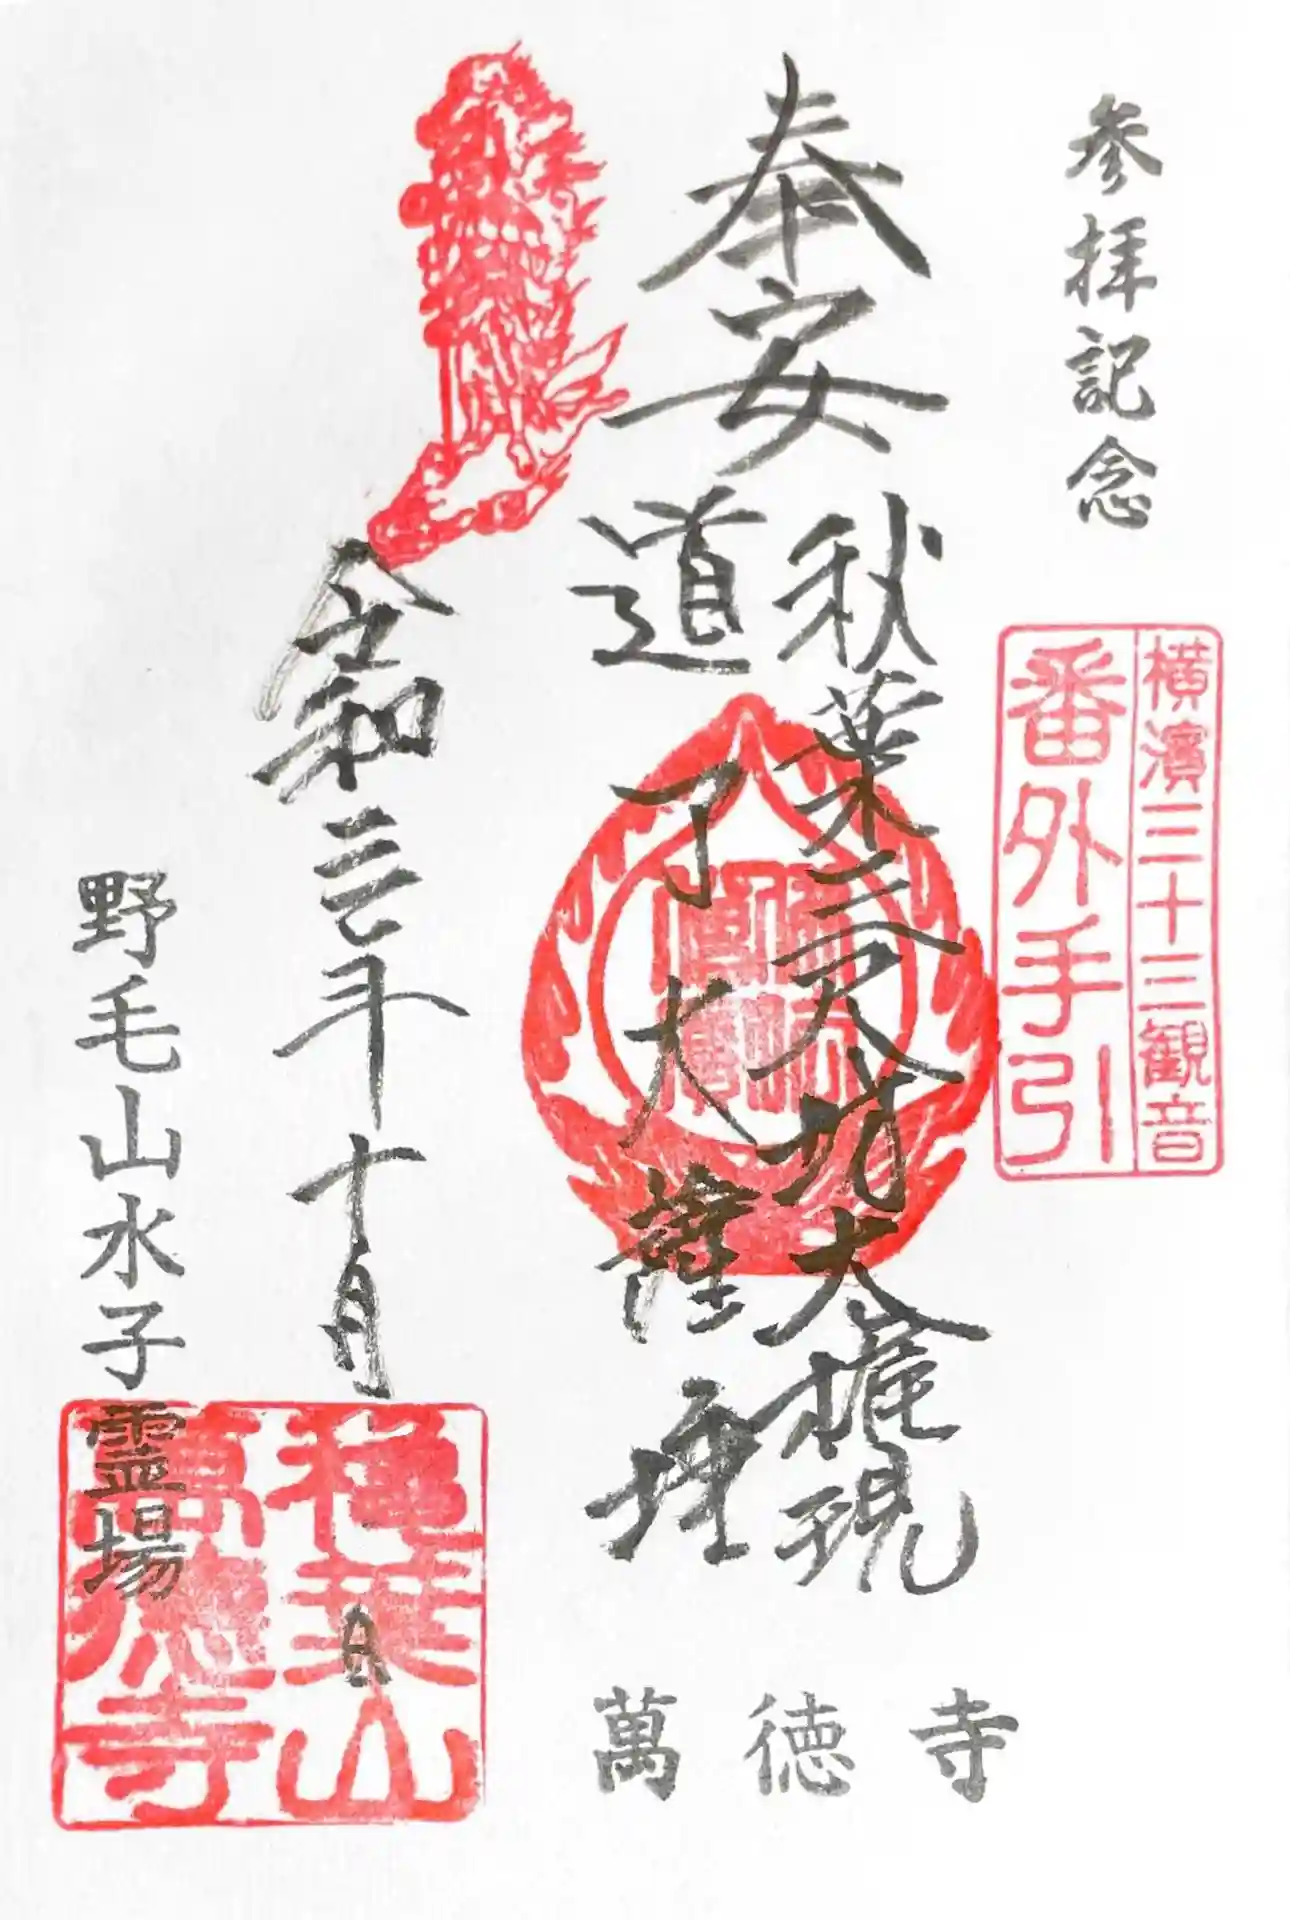 参拝記念
横濱三十三観音
番外手引
奉安
秋葉三尺坊大権現
道了大薩埵
令和三年十月 日
野毛山水子霊場
萬徳寺
穐葉山
萬徳寺